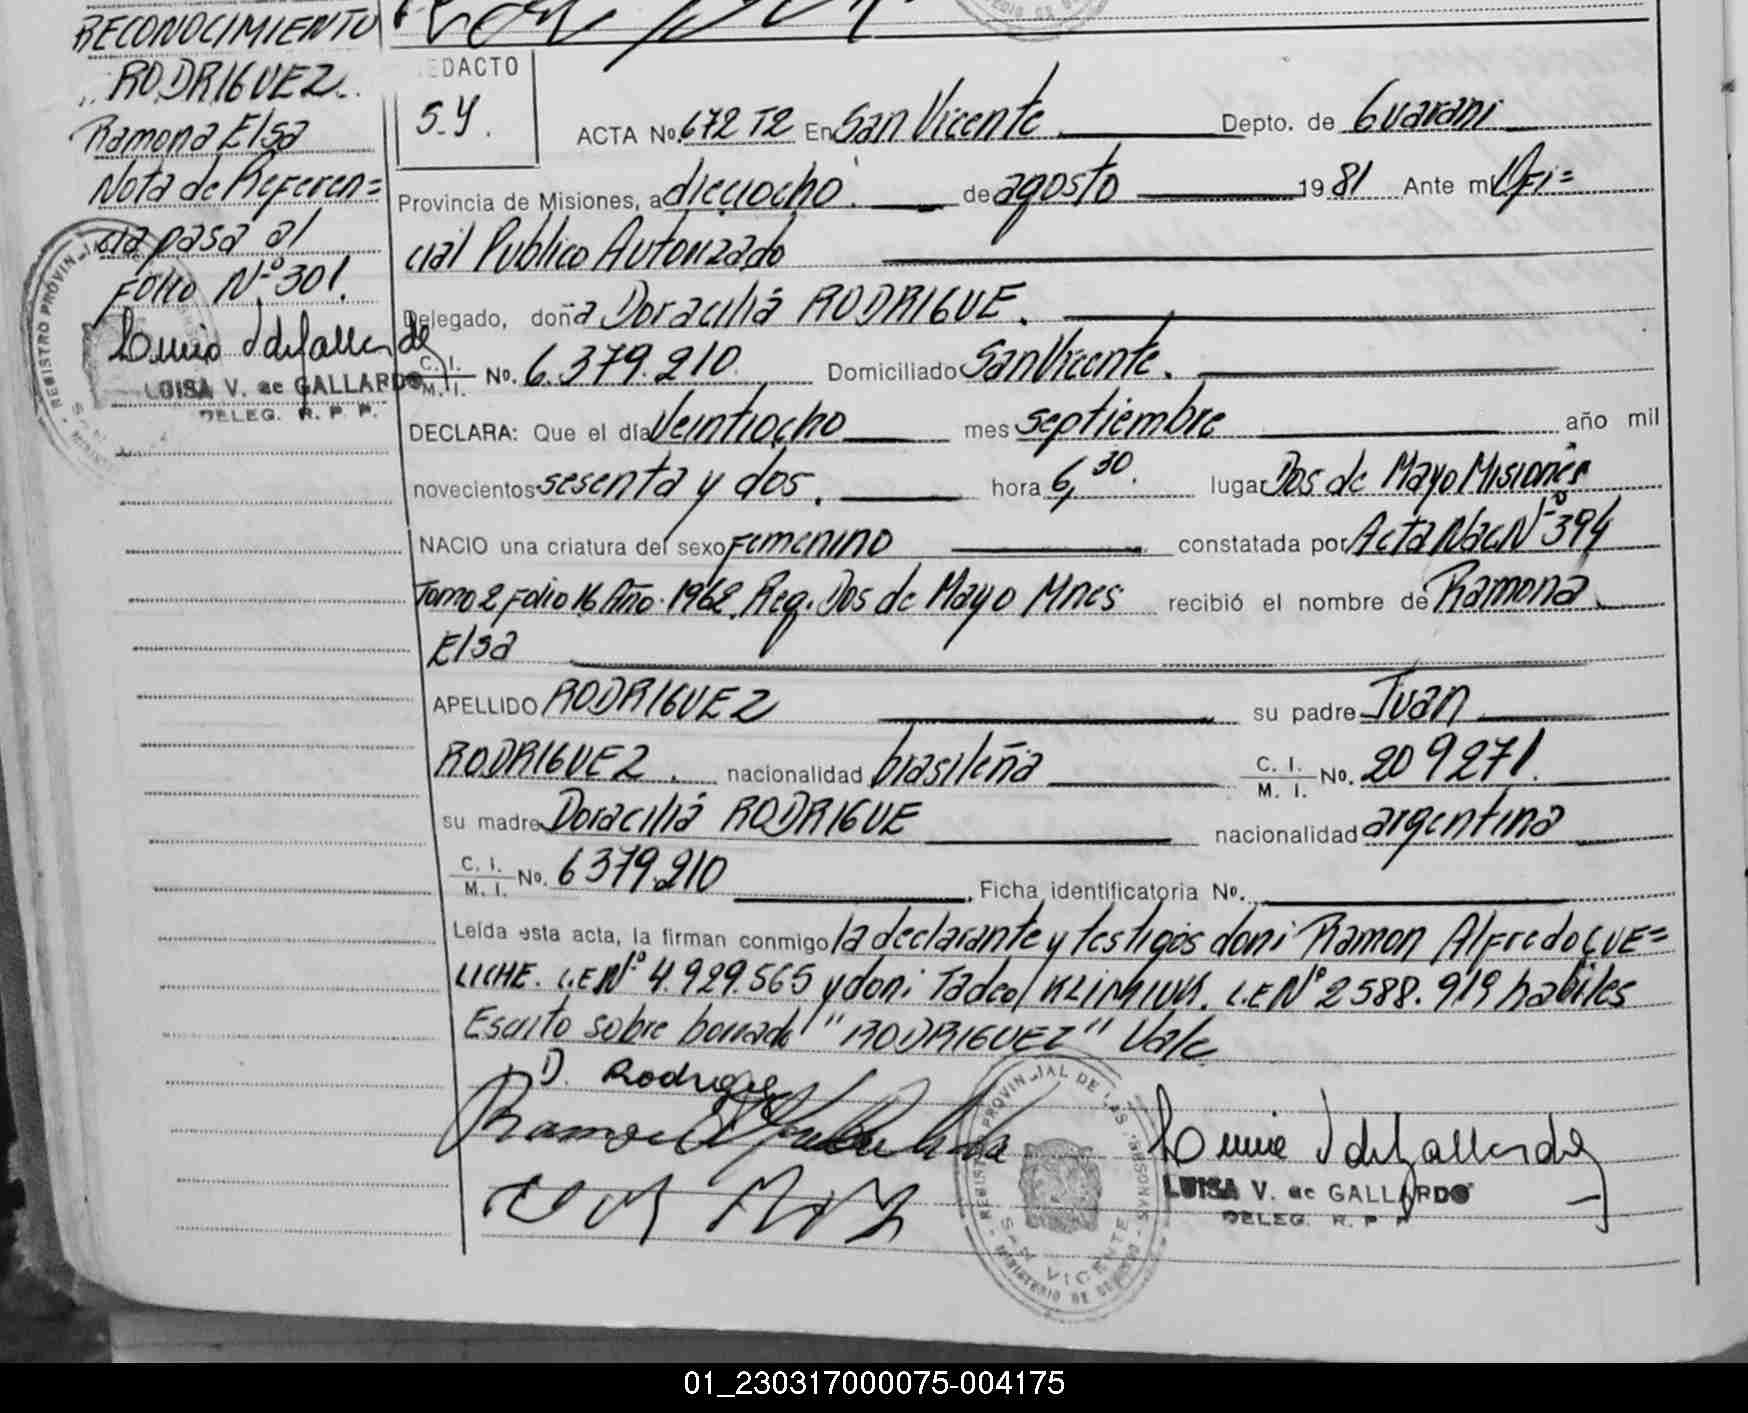 RECONOCIMIENTO
RODRIGUEZ
Ramona Elsa
Nota de Referen=
cia pasa al
Folio Nº 301.
LUISA V. de GALLARDO
DELEG. R. P. P.
REGISTRO PROVIN
EDACTO
S.Y.
ACTA No. 672 T2 En San Vicente. Depto. de Guarani
Provincia de Misiones, a dieciocho. de agosto 19 81 Ante mi Ofi=
cial Publico Autorizado
Delegado, doña Doracilia RODRIGUE.
C. I. / M. I. No. 6.379.210 Domiciliado San Vicente.
DECLARA: Que el día Veintiocho mes septiembre año mil
novecientos sesenta y dos. hora 6,30. lugar Dos de Mayo Misiones
NACIO una criatura del sexo Femenino constatada por Acta Nac Nº 394
Tomo 2 Folio 16 Año. 1962. Reg. Dos de Mayo Mnes recibió el nombre de Ramona
Elsa
APELLIDO RODRIGUEZ su padre Juan
RODRIGUEZ. nacionalidad brasileña C. I. / M. I. No. 209271.
su madre Doracilia RODRIGUE nacionalidad argentina
C. I. / M. I. No. 6379.210 Ficha identificatoria No.
Leída esta acta, la firman conmigo la declarante y testigos doni Ramon Alfredo CUE=
LICHE. L.E Nº 4.929.565 y doni Tadeo L.E Nº 2588.919 habiles
Escrito sobre borrado "RODRIGUEZ" Vale
D. Rodrigue
REGISTRO PROVINCIAL DE LAS PERSONAS
SAN VICENTE
MINISTERIO DE GOBIERNO
LUISA V. de GALLARDO
DELEG. R. P. P.
01_230317000075-004175